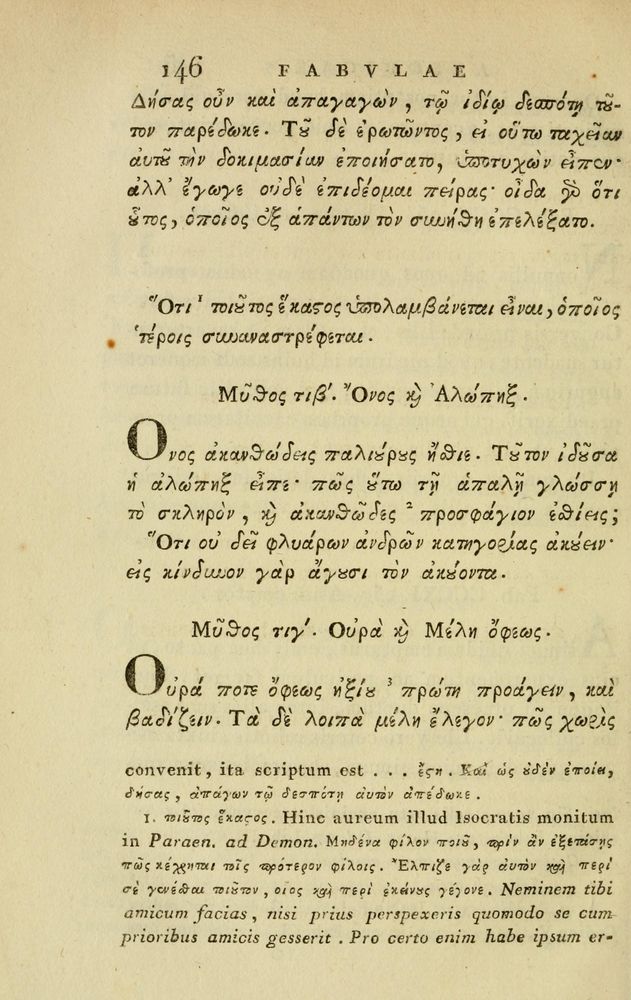 146 FABVLAE
Δήσας οὖν καὶ ἀπαγαγὼν, τῷ ἰδίῳ δεσπότῃ τοῦ-
τον παρέδωκε. Τοῦ δὲ ἐρωτῶντος, εἰ οὕτω ταχεῖαν
αὐτοῦ τὴν δοκιμασίαν ἐποιήσατο, ὑποτυχὼν εἶπεν·
ἀλλ' ἔγωγε οὐδὲ ἐπιδέομαι πείρας· οἶδα γὰρ ὅτι
οὗτος, ὁποῖος ἐξ ἁπάντων τὸν συνήθη ἐπελέξατο.
Ὅτι ¹ τοιοῦτος ἕκαστος ὑπολαμβάνεται εἶναι, ὁποῖος
ἑτέροις συναναστρέφεται.
Μῦθος τιβ'. Ὄνος καὶ Ἀλώπηξ.
Ὄνος ἀκανθώδεις παλιούρους ἤσθιε. Τοῦτον ἰδοῦσα
ἡ ἀλώπηξ εἶπε· πῶς οὕτω τῇ ἁπαλῇ γλώσσῃ
τὸ σκληρὸν, καὶ ἀκανθῶδες ² προσφάγιον ἐσθίεις;
Ὅτι οὐ δεῖ φλυάρων ἀνδρῶν κατηγορίας ἀκούειν·
εἰς κίνδυνον γὰρ ἄγουσι τὸν ἀκούοντα.
Μῦθος τιγ'. Οὐρὰ καὶ Μέλη ὄφεως.
Οὐρά ποτε ὄφεως ἠξίου ³ πρώτη προάγειν, καὶ
βαδίζειν. Τὰ δὲ λοιπὰ μέλη ἔλεγον· πῶς χωρὶς
convenit, ita scriptum est ... ἔστη. Καὶ ὡς οὐδὲν ἐποίει,
δήσας, ἀπάγων τῷ δεσπότῃ αὐτὸν ἀπέδωκε.
1. τοιοῦτος ἕκαστος. Hinc aureum illud Isocratis monitum
in Paraen. ad Demon. Μηδένα φίλον ποιοῦ, πρὶν ἂν ἐξετάσῃς
πῶς κέχρηται τοῖς πρότερον φίλοις. Ἔλπιζε γὰρ αὐτὸν καὶ περὶ
σὲ γενέσθαι τοιοῦτον, οἷος καὶ περὶ ἐκείνους γέγονε. Neminem tibi
amicum facias, nisi prius perspexeris quomodo se cum
prioribus amicis gesserit. Pro certo enim habe ipsum er-